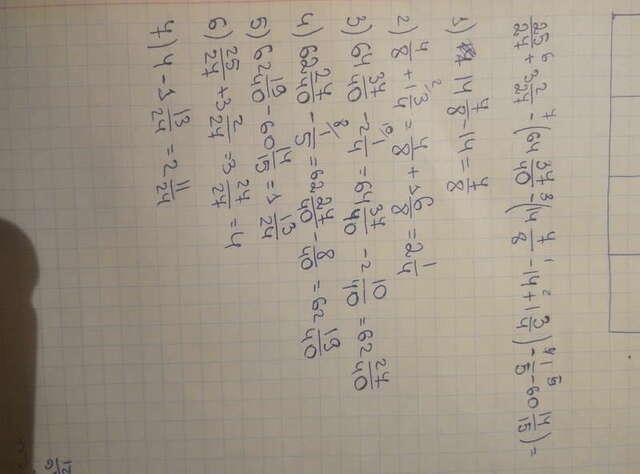 25/27 +⁶ 3 2/27 -⁷ (64 37/40 -³ (14 4/8 -¹ 14 +² 1 3/4) -⁴ 1/5 -⁵ 60 14/15) =
1) 14 4/8 - 14 = 4/8
2) 4/8 + 1 3/4 = 4/8 + 1 6/8 = 2 1/4
3) 64 37/40 - 2 1/4 = 64 37/40 - 2 10/40 = 62 27/40
4) 62 27/40 - 1/5 = 62 27/40 - 8/40 = 62 19/40
5) 62 19/40 - 60 14/15 = 1 13/24
6) 25/27 + 3 2/27 = 3 27/27 = 4
7) 4 - 1 13/24 = 2 11/24